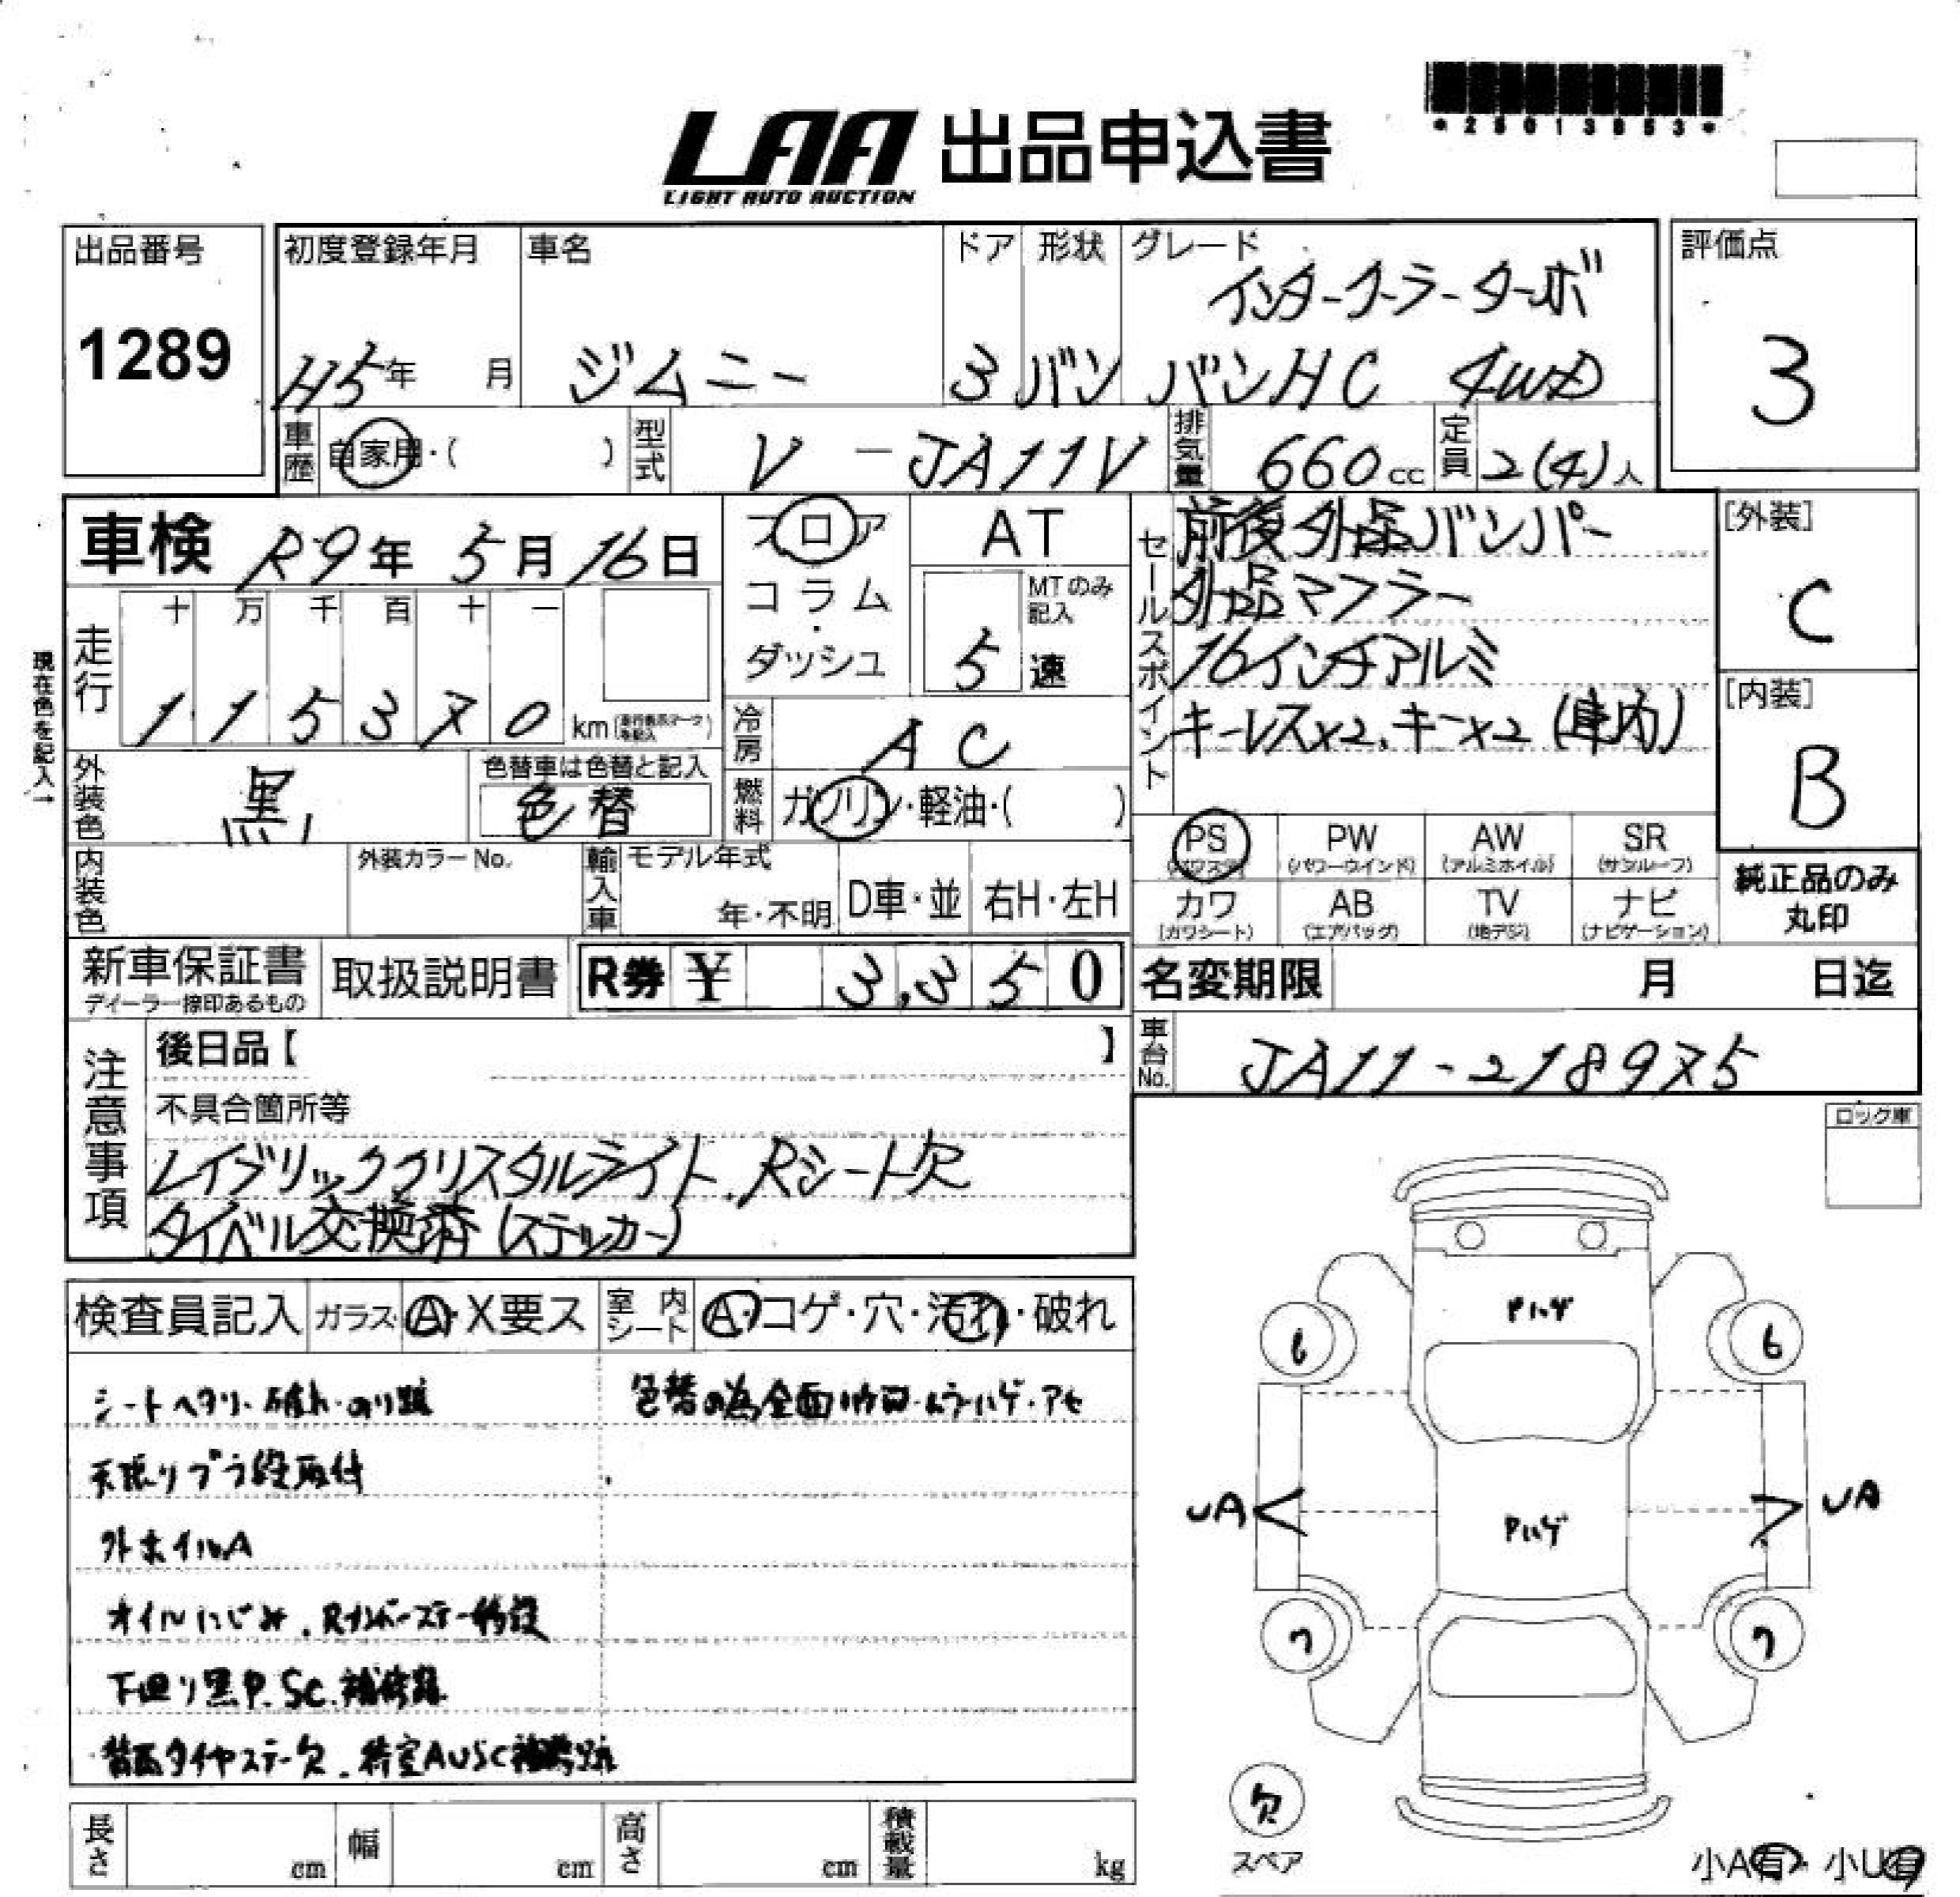 *25013853*
LAA 出品申込書
LIGHT AUTO AUCTION
出品番号
1289
初度登録年月
H5年 月
車名
ジムニー
ドア
3
形状
バン
グレード
インタークーラーターボ
バンHC 4WD
評価点
3
車歴 自家用・( )
型式 V-JA11V
排気量 660cc
定員 2(4)人
車検 R9年 5月16日
フロア
コラム
・
ダッシュ
AT
MTのみ記入
5速
セールスポイント
前後外品バンパー
外品マフラー
16インチアルミ
キーレス×2、キー×2 (車内)
[外装]
C
[内装]
B
現在色を記入→
走行
十 万 千 百 十 一
1 1 5 3 7 0 km
冷房 AC
外装色 黒
色替車は色替と記入
色替
燃料 ガソリン・軽油・( )
PS (パワステ)
PW (パワーウインド)
AW (アルミホイル)
SR (サンルーフ)
カワ (カワシート)
AB (エアバッグ)
TV (地デジ)
ナビ (ナビゲーション)
純正品のみ
丸印
内装色
外装カラーNo.
輸入車
モデル年式
年・不明
D車・並
右H・左H
新車保証書
ディーラー捺印あるもの
取扱説明書
R券 ¥ 3,350
名変期限 月 日迄
車台No. JA11-218975
注意事項
後日品【 】
不具合箇所等
レイブリッククリスタルライト、Rシート欠
タイベル交換済(ステッカー)
ロック車
検査員記入
ガラス A・X要ス
室内シート A・コゲ・穴・汚れ・破れ
シートヘタリ・破れ・のり跡
色替の為全面
天張りプラ鋲取付
外ホイルA
オイルにじみ、Rナンバーステー移設
下回り黒P、SC、補修跡
タイヤステー欠、荷室AUSC補修跡
Pハゲ
6
6
UA
UA
Pハゲ
7
7
欠
スペア
小A有・小U有
長さ cm
幅 cm
高さ cm
積載量 kg